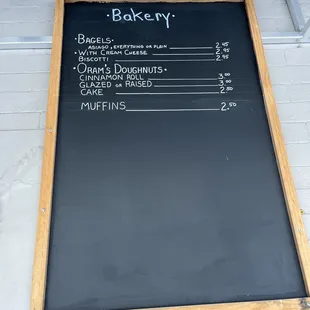 · Bakery ·
· BAGELS ·
ASIAGO, EVERYTHING OR PLAIN 2.45
· WITH CREAM CHEESE 2.95
BISCOTTI 2.95
· ORAM'S DOUGHNUTS ·
CINNAMON ROLL 3.00
GLAZED OR RAISED 3.00
CAKE 2.50
MUFFINS 2.50